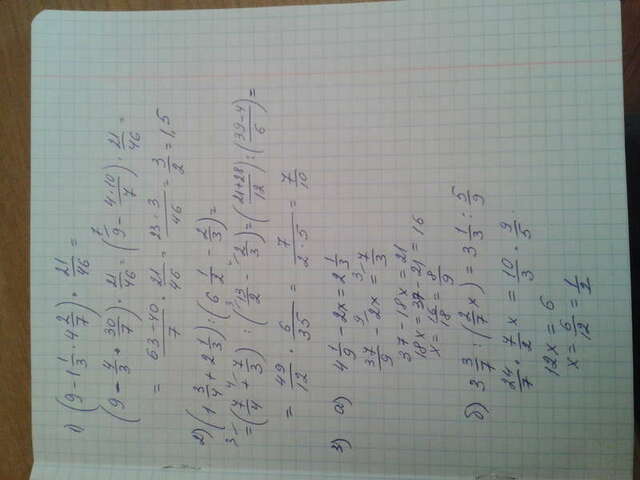 1) (9 - 1 1/3 · 4 2/7) · 21/46 =
(9 - 4/3 · 30/7) · 21/46 = (9 - 4·10/7) · 21/46 =
= 63-40/7 · 21/46 = 23·3/46 = 3/2 = 1,5
2) (1 3/4 + 2 1/3) : (6 1/2 - 2/3) =
= (7/4 + 7/3) : (13/2 - 2/3) = (21+28/12) : (39-4/6) =
= 49/12 · 6/35 = 7/2·5 = 7/10
3) а) 4 1/9 - 2x = 2 1/3
37/9 - 2x = 7/3
37 - 18x = 21
18x = 37 - 21 = 16
x = 16/18 = 8/9
б) 3 3/7 : (2/7 x) = 3 1/3 : 5/9
24/7 · 7/2 x = 10/3 · 9/5
12x = 6
x = 6/12 = 1/2